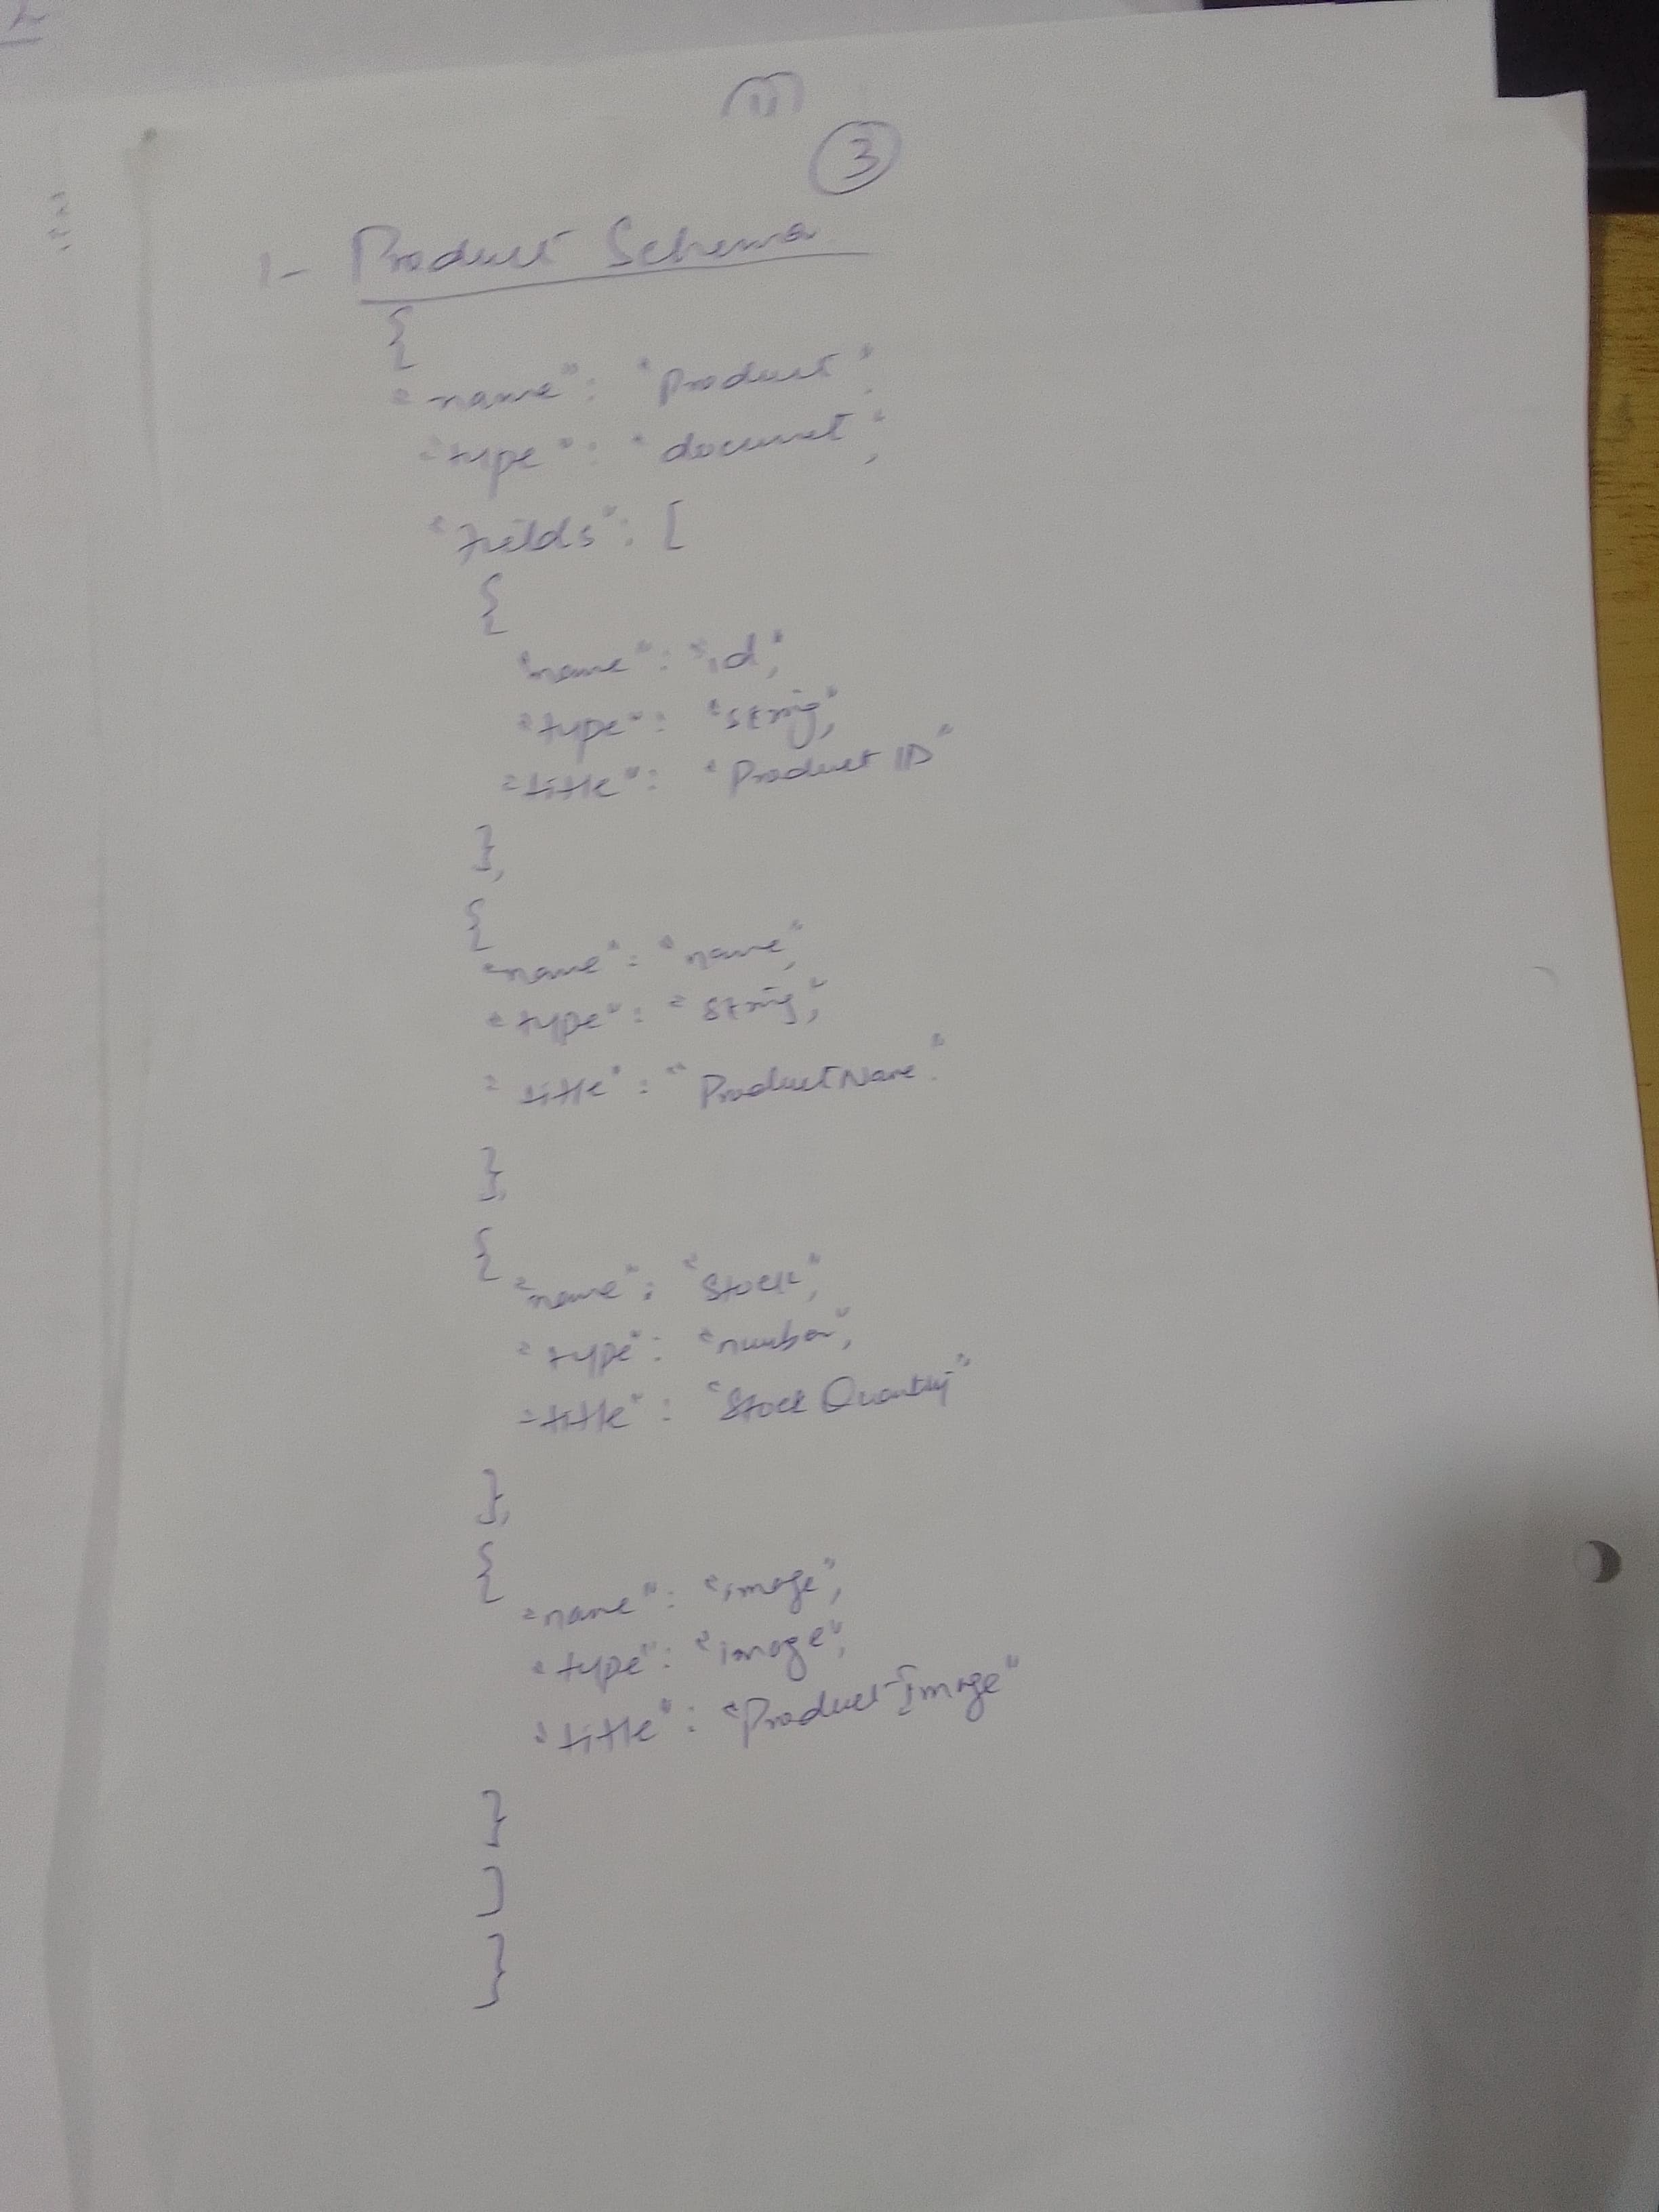 3
1- Product Schema
{
"name": "product",
"type": "documet",
"fields": [
{
"name": "id",
"type": "string",
"title": "Product ID"
},
{
"name": "name",
"type": "string",
"title": "Product Name"
},
{
"name": "Stock",
"type": "number",
"title": "Stock Quantity"
},
{
"name": "image",
"type": "image",
"title": "Product Image"
}
]
}